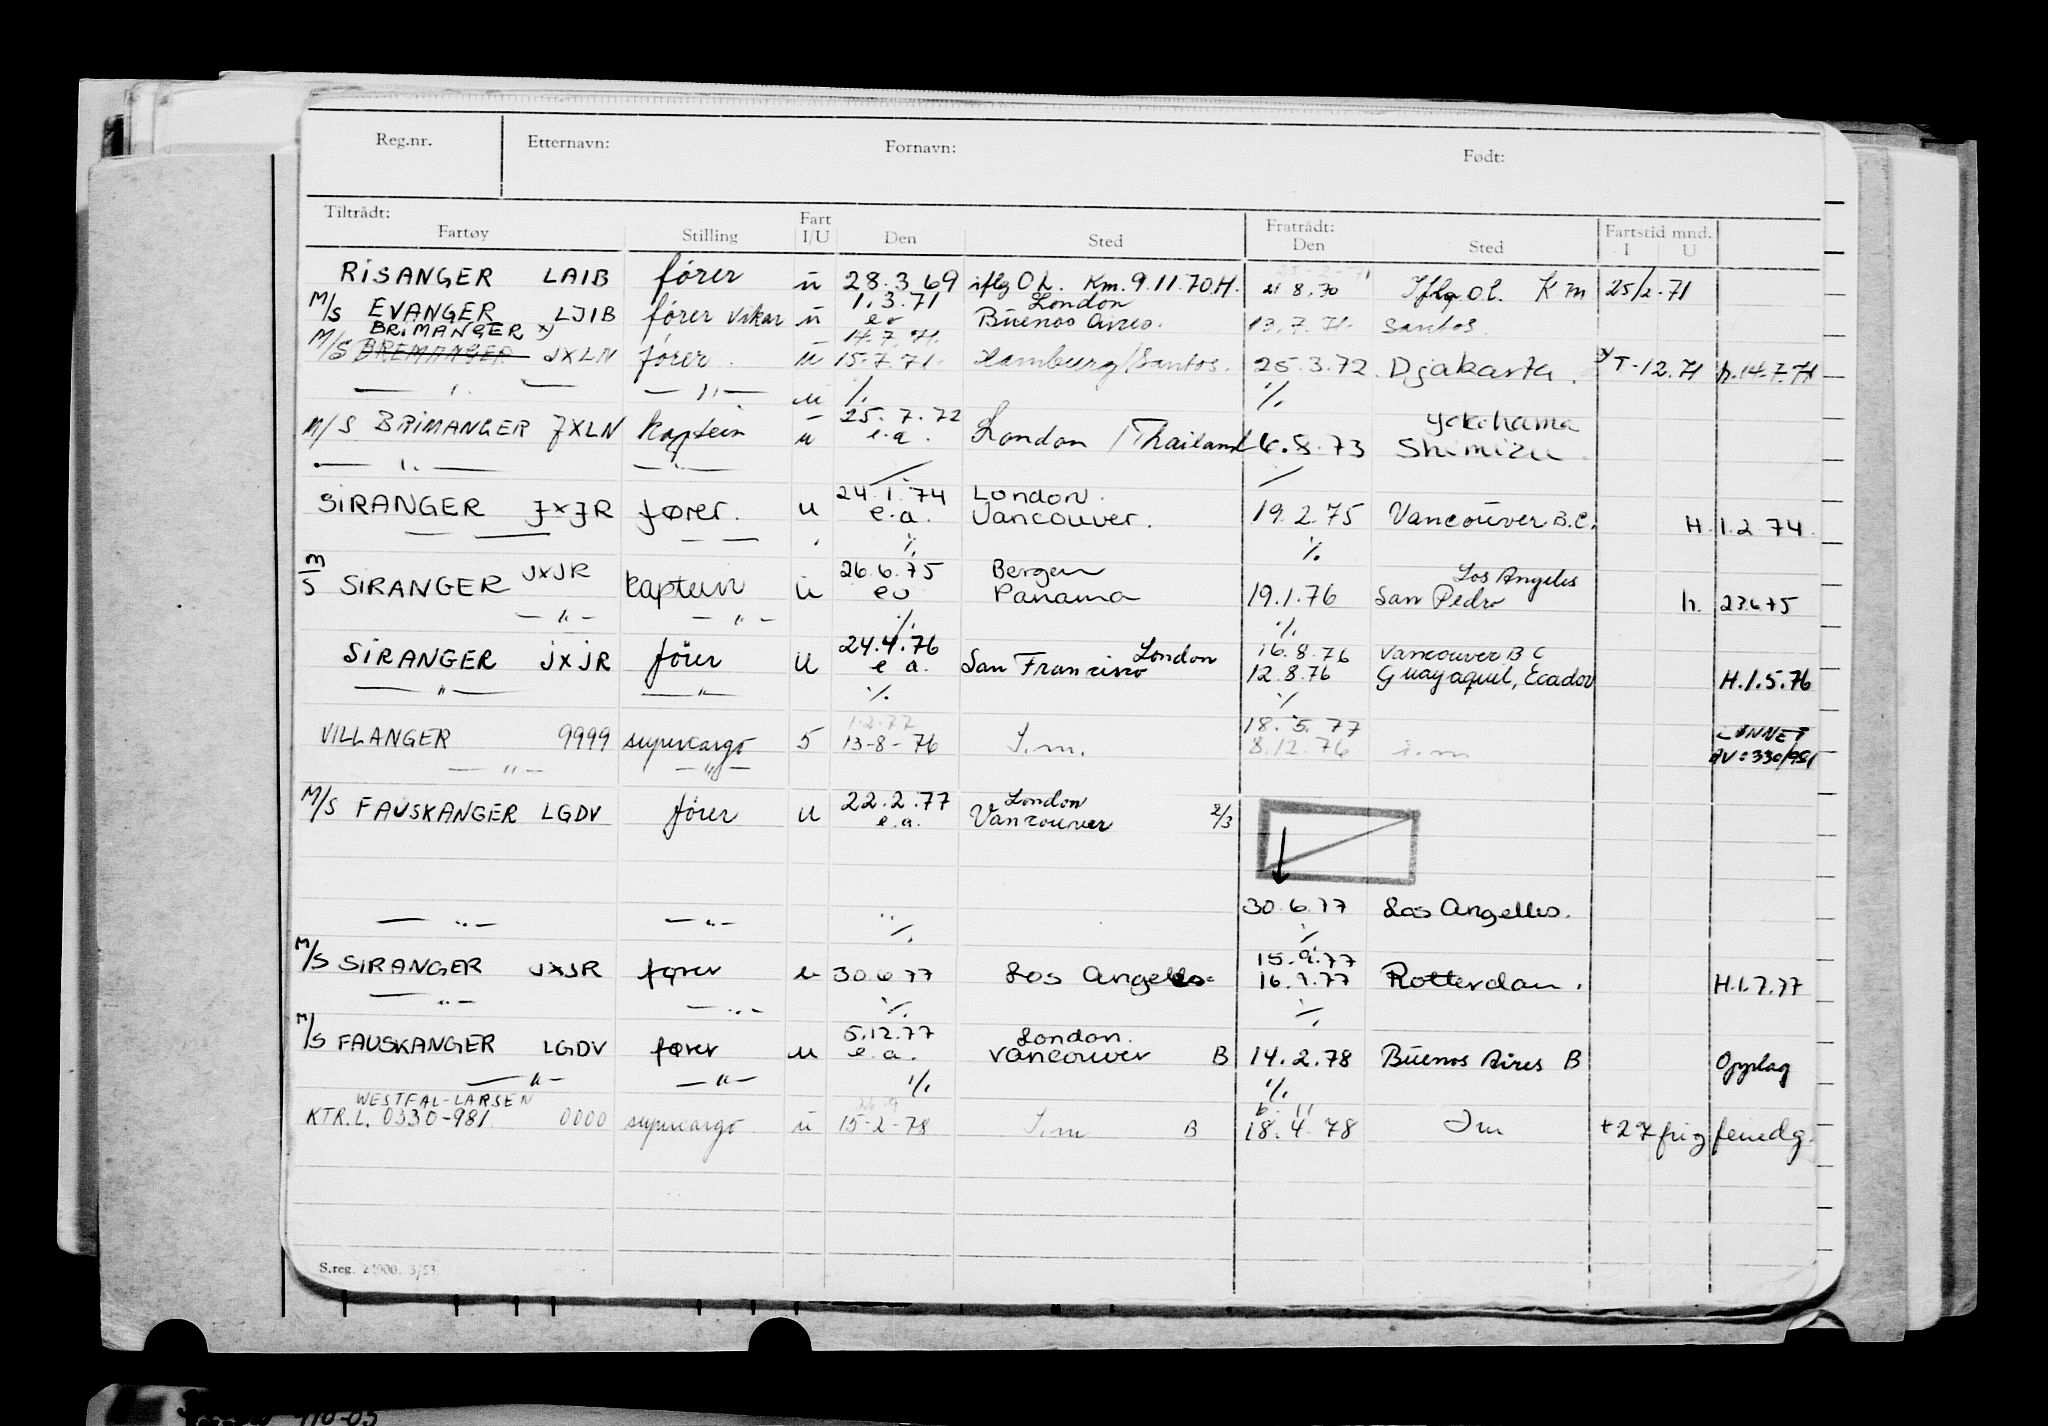 Reg.nr. Etternavn: Fornavn: Født:
Tiltrådt: Fart Fratrådt: Fartstid mnd.
Fartøy Stilling I/U Den Sted Den Sted I U
RISANGER LAIB fører ū 28.3.69 iflg O.L. Km. 9.11.70 H. 21.8.70 Iflg O.L. K.m 25/2.71
1.3.71 London
M/S EVANGER LJIB fører vikar ū Buenos Aires. 13.7.71. Santos.
BRIMANGER x) 14.7.71
M/S BREMANGER JXLN fører. u 15.7.71. Hamburg/Santos. 25.3.72 Djakarta. T-12.71 h.14.7.71
— " — — " — u ./. ./.
25.7.72 Yokohama
M/S BRIMANGER JXLN Kaptein u e.a. London / Thailand 6.8.73 Shimizu
— " — — " — ./. ./.
24.1.74 London.
SIRANGER JXJR fører. u e.a. Vancouver. 19.2.75 Vancouver B.C. H. 1.2.74.
— — — — ./. ./.
JXJR 26.6.75 Bergen Los Angeles
M/S SIRANGER Kaptein ū Panama 19.1.76 San Pedro h. 23.6.75
— " — — " — ./. ./.
24.4.76 London 16.8.76 Vancouver B C
SIRANGER JXJR fører U e a. San Francisco 12.8.76 Guayaquil, Ecador H.1.5.76
— " — — " — ./. ./.
1.2.77 18.5.77
VILLANGER 9999 supercargo 5 13-8-76 I.m. 8.12.76 i.m AV: 330/981
— " — — " —
22.2.77 London
M/S FAUSKANGER LGDV fører u e.a. Vancouver 2/3
30.6.77 Los Angelles.
— " — — " — ./. ./.
15.9.77
M/S SIRANGER JXJR fører u 30.6.77 Los Angelles 16.9.77 Rotterdam. H.1.7.77
— " — — " — ./. ./.
5.12.77 London.
M/S FAUSKANGER LGDV fører u e.a. Vancouver B 14.2.78 Buenos Aires B Opplag
— " — — " — ./. ./.
WESTFAL-LARSEN
KTR.L. 0330-981 0000 supercargo ū 15-2-78 I.m B 18.4.78 Im +27 fri
S.reg. 24000. 3/53.